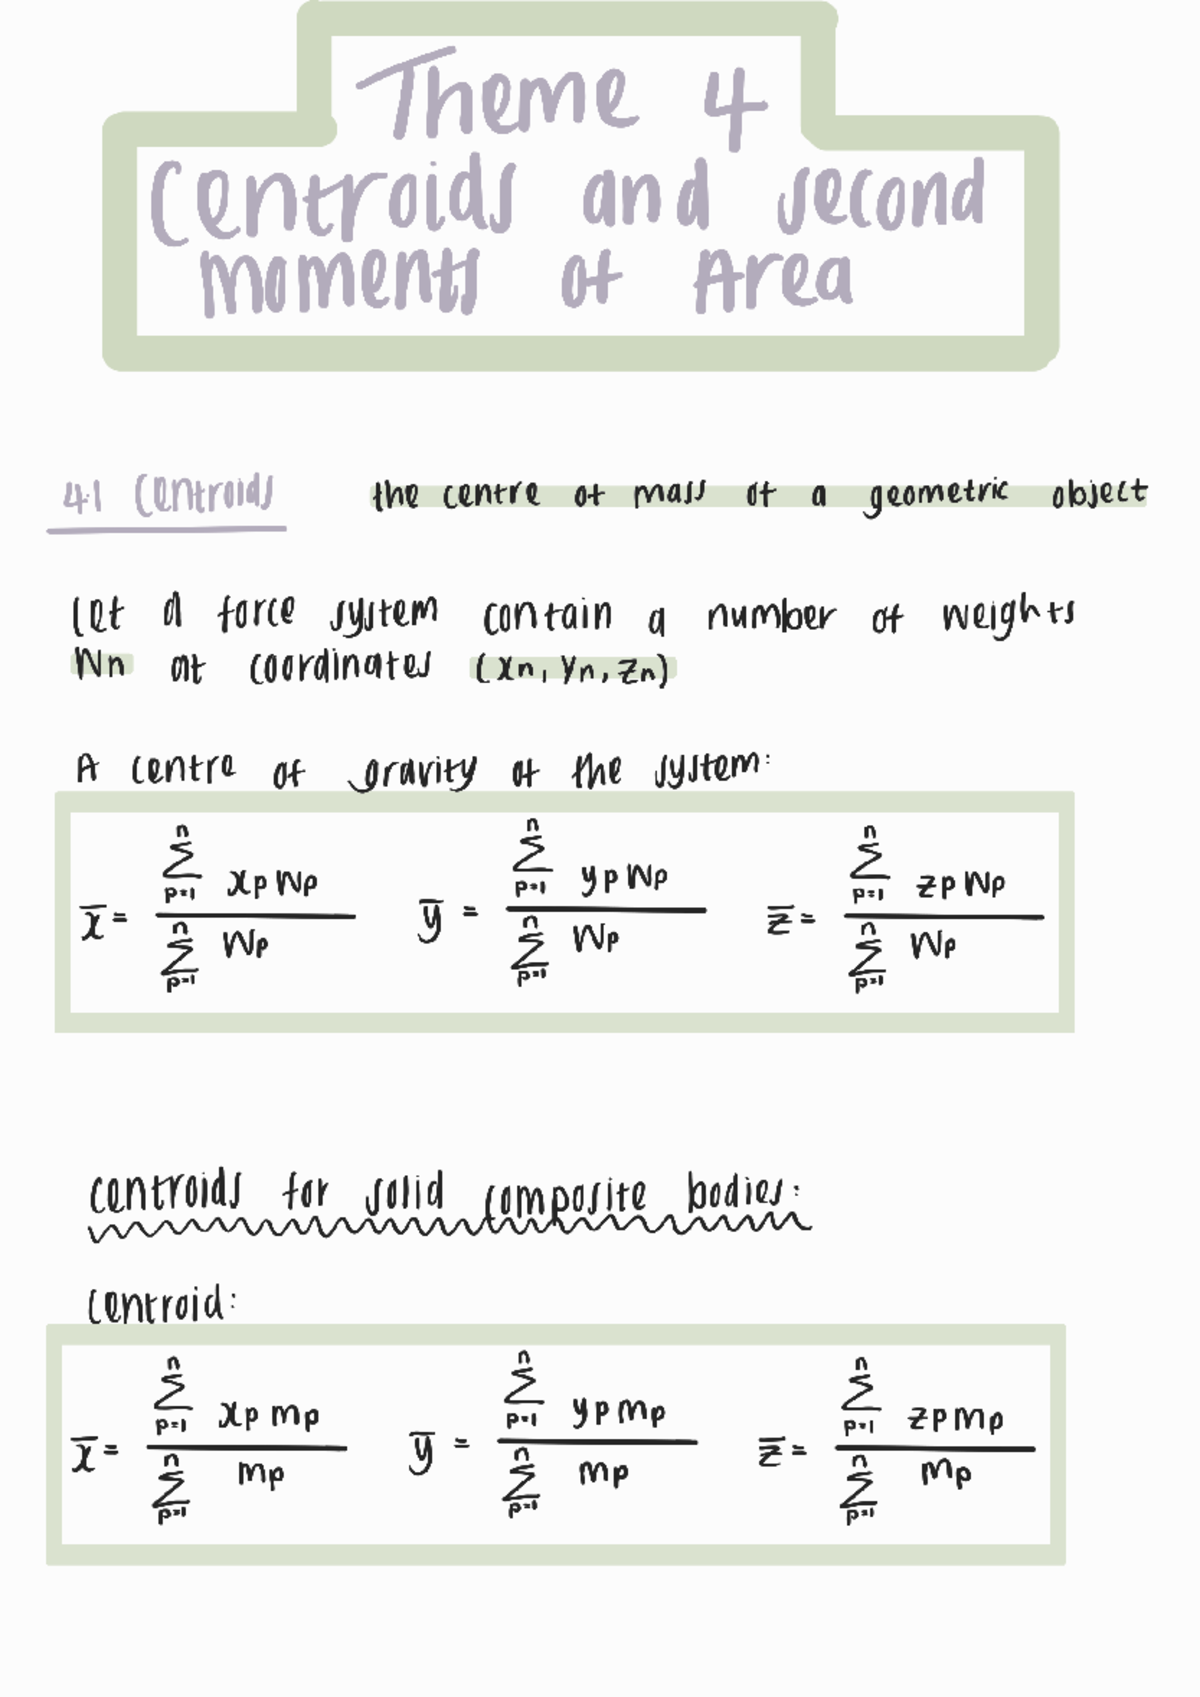 Theme 4
Centroids and second
moments of Area
4.1 Centroids the centre of mass of a geometric object
Let a force system contain a number of weights
Wn at coordinates (xn, yn, zn)
A centre of gravity of the system:
x̄ = \frac{\sum_{p=1}^{n} xp Wp}{\sum_{p=1}^{n} Wp} ȳ = \frac{\sum_{p=1}^{n} yp Wp}{\sum_{p=1}^{n} Wp} z̄ = \frac{\sum_{p=1}^{n} zp Wp}{\sum_{p=1}^{n} Wp}
centroids for solid composite bodies:
Centroid:
x̄ = \frac{\sum_{p=1}^{n} xp mp}{\sum_{p=1}^{n} mp} ȳ = \frac{\sum_{p=1}^{n} yp mp}{\sum_{p=1}^{n} mp} z̄ = \frac{\sum_{p=1}^{n} zp mp}{\sum_{p=1}^{n} mp}